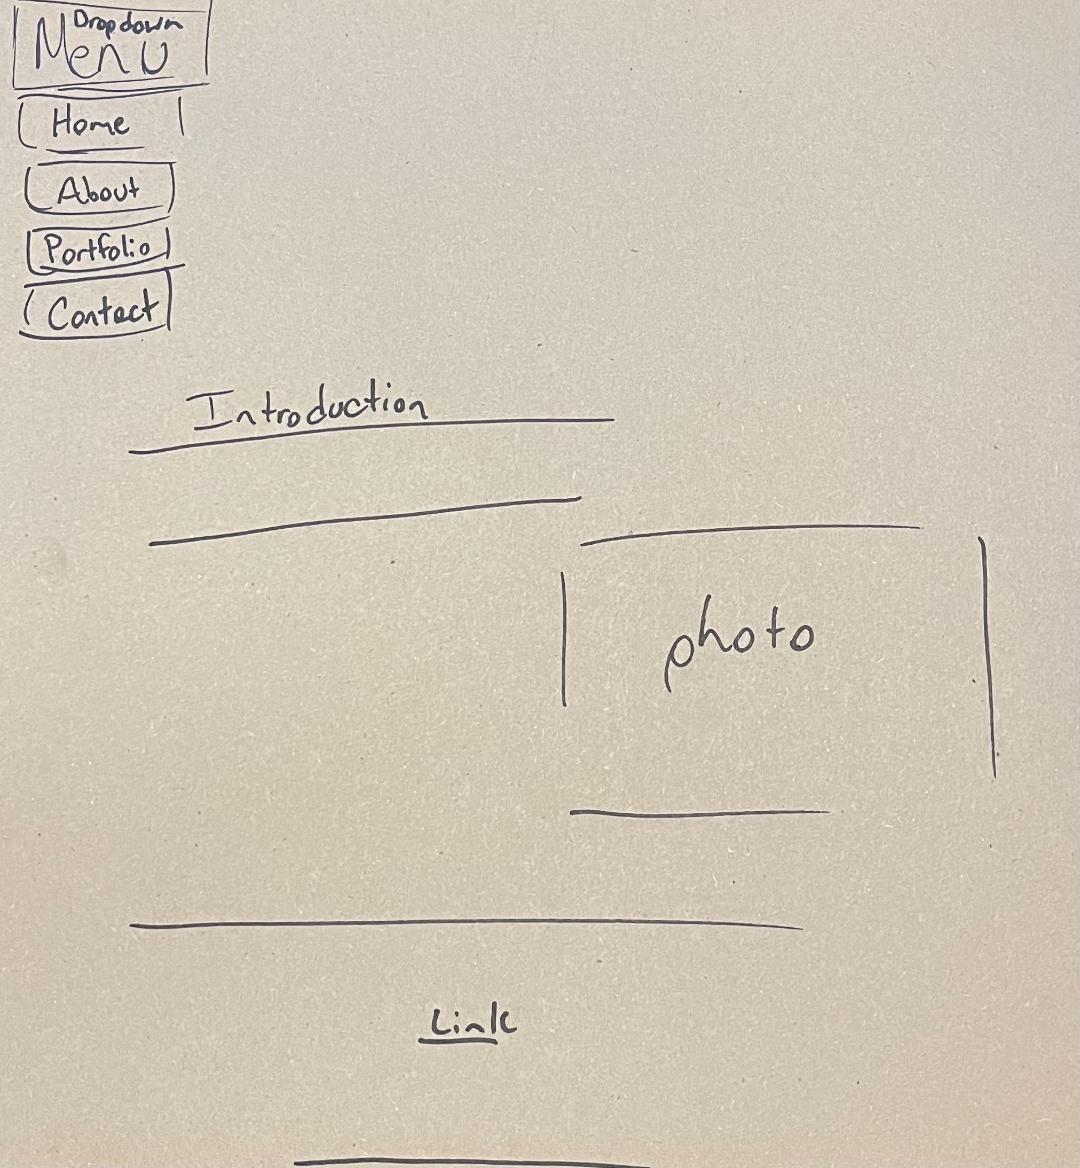 Dropdown
Menu
Home
About
Portfolio
Contact
Introduction
photo
Link